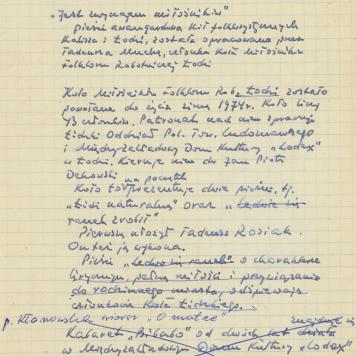 "Jest związana miłośników"
Pieśń awangardowa Kół folklorystycznych
Kalisza i Łodzi, została opracowana przez
Tadeusza Muchę, członka Koła Miłośników
folkloru Robotniczej Łodzi
Koło Miłośników Folkloru Rob. Łodzi zostało
powołane do życia zimą 1974r. Koło liczy
43 członków. Patronat nad nim sprawuje
Łódzki Oddział Pol. Tow. Ludoznawczego
i Międzyzakładowy Dom Kultury "Lodex"
w Łodzi. Kieruje nim dr Jan Piotr
Dekowski
na początek
Koło to prezentuje dwie pieśni, tj.
"Łódź naturalną" oraz "Ledwie się
ranek zrobił"
Pierwszą ułożył Tadeusz Rosiak.
On też ją wykona.
Pieśń "Ledwo się ranek" o charakterze
lirycznym, pełną miłości i przywiązania
do rodzinnego miasta, odśpiewają
członkowie Koła Łódzkiego.
p. Klonowska wiersz "O matce"
znajduje się
Kabaret "Bikabo" od dwóch lat działa
w Międzyzakładowym Domu Kultury "Lodex"